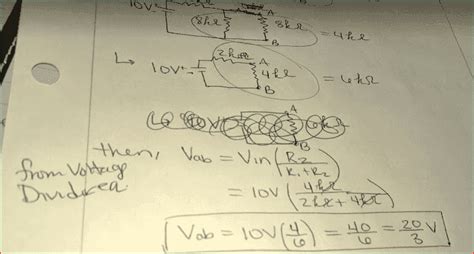 10V
A
8kΩ 8kΩ = 4kΩ
B
2kΩ
A
10V 4kΩ = 6kΩ
B
A
B
then, Vab = Vin (R2 / R1 + R2)
from Voltage
Divider
= 10V (4kΩ / 2kΩ + 4kΩ)
Vab = 10V (4/6) = 40/6 = 20/3 V